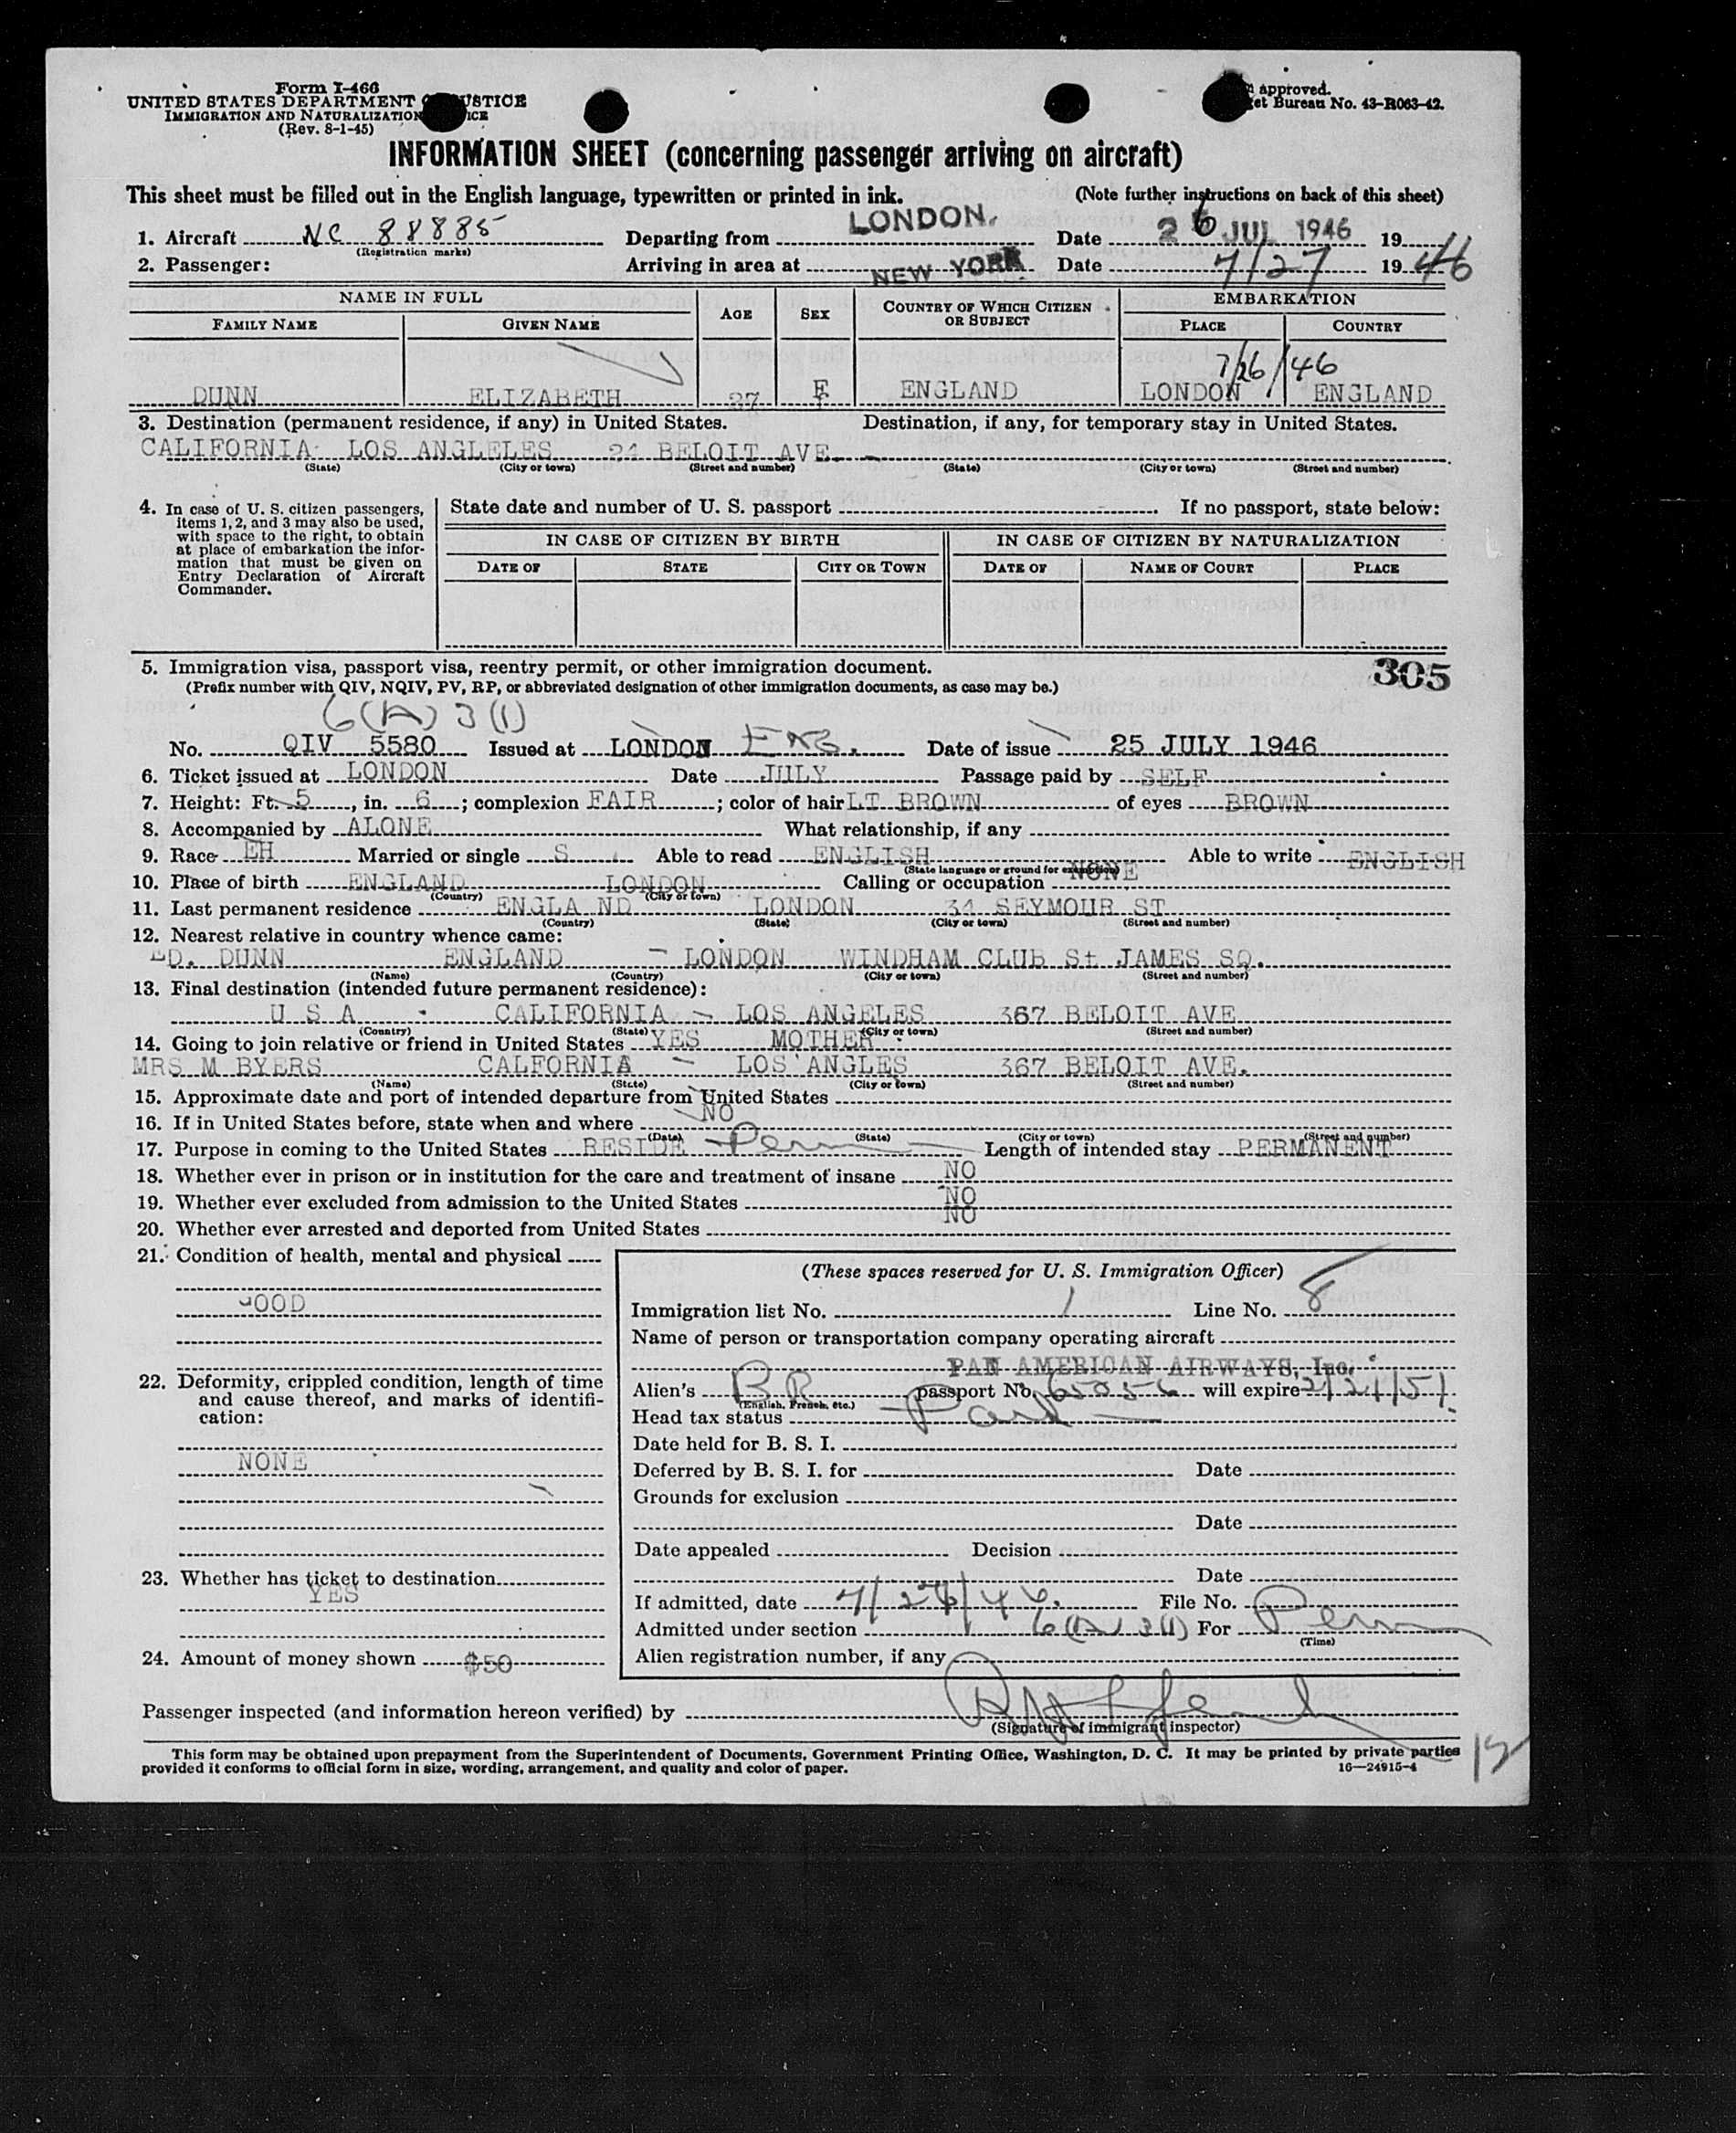 Form I-466
UNITED STATES DEPARTMENT JUSTICE
IMMIGRATION AND NATURALIZATION
(Rev. 8-1-45)
approved.
Bureau No. 43-R063-42.
INFORMATION SHEET (concerning passenger arriving on aircraft)
This sheet must be filled out in the English language, typewritten or printed in ink. (Note further instructions on back of this sheet)
1. Aircraft NC 88885 Departing from LONDON. Date 26 JUL 1946 19
(Registration marks)
2. Passenger: Arriving in area at NEW YORK Date 7/27 1946
NAME IN FULL AGE SEX COUNTRY OF WHICH CITIZEN OR SUBJECT EMBARKATION
FAMILY NAME GIVEN NAME PLACE COUNTRY
7/26/46
DUNN ELIZABETH 27 F ENGLAND LONDON ENGLAND
3. Destination (permanent residence, if any) in United States. Destination, if any, for temporary stay in United States.
CALIFORNIA LOS ANGLELES 24 BELOIT AVE.
(State) (City or town) (Street and number) (State) (City or town) (Street and number)
4. In case of U. S. citizen passengers, items 1, 2, and 3 may also be used, with space to the right, to obtain at place of embarkation the information that must be given on Entry Declaration of Aircraft Commander.
State date and number of U. S. passport If no passport, state below:
IN CASE OF CITIZEN BY BIRTH IN CASE OF CITIZEN BY NATURALIZATION
DATE OF STATE CITY OR TOWN DATE OF NAME OF COURT PLACE
5. Immigration visa, passport visa, reentry permit, or other immigration document. 305
(Prefix number with QIV, NQIV, PV, RP, or abbreviated designation of other immigration documents, as case may be.)
6(A) 3(1)
No. QIV 5580 Issued at LONDON ENG. Date of issue 25 JULY 1946
6. Ticket issued at LONDON Date JULY Passage paid by SELF
7. Height: Ft. 5, in. 6; complexion FAIR; color of hair LT BROWN of eyes BROWN
8. Accompanied by ALONE What relationship, if any
9. Race EH Married or single S Able to read ENGLISH Able to write ENGLISH
(State language or ground for exemption)
10. Place of birth ENGLAND LONDON Calling or occupation NONE
(Country) (City or town)
11. Last permanent residence ENGLA ND LONDON 34 SEYMOUR ST
(Country) (State) (City or town) (Street and number)
12. Nearest relative in country whence came:
ED. DUNN ENGLAND - LONDON WINDHAM CLUB St JAMES SQ.
(Name) (Country) (City or town) (Street and number)
13. Final destination (intended future permanent residence):
U S A CALIFORNIA - LOS ANGELES 367 BELOIT AVE
(Country) (State) (City or town) (Street and number)
14. Going to join relative or friend in United States YES MOTHER
MRS M BYERS CALFORNIA - LOS ANGLES 367 BELOIT AVE.
(Name) (State) (City or town) (Street and number)
15. Approximate date and port of intended departure from United States
16. If in United States before, state when and where NO
(Date) (State) (City or town) (Street and number)
17. Purpose in coming to the United States RESIDE Perm Length of intended stay PERMANENT
18. Whether ever in prison or in institution for the care and treatment of insane NO
19. Whether ever excluded from admission to the United States NO
20. Whether ever arrested and deported from United States NO
21. Condition of health, mental and physical
GOOD
22. Deformity, crippled condition, length of time and cause thereof, and marks of identification:
NONE
23. Whether has ticket to destination
YES
24. Amount of money shown $50
(These spaces reserved for U. S. Immigration Officer)
Immigration list No. 1 Line No. 8
Name of person or transportation company operating aircraft
PAN AMERICAN AIRWAYS, Inc.
Alien's BR passport No. 65056 will expire 2/21/51
(English, French, etc.)
Head tax status
Date held for B. S. I.
Deferred by B. S. I. for Date
Grounds for exclusion
Date
Date appealed Decision
Date
If admitted, date 7/27/46. File No.
Admitted under section 6(A) 3(1) For Perm
(Time)
Alien registration number, if any
Passenger inspected (and information hereon verified) by
(Signature of immigrant inspector)
This form may be obtained upon prepayment from the Superintendent of Documents, Government Printing Office, Washington, D. C. It may be printed by private parties
provided it conforms to official form in size, wording, arrangement, and quality and color of paper. 16—24915-4